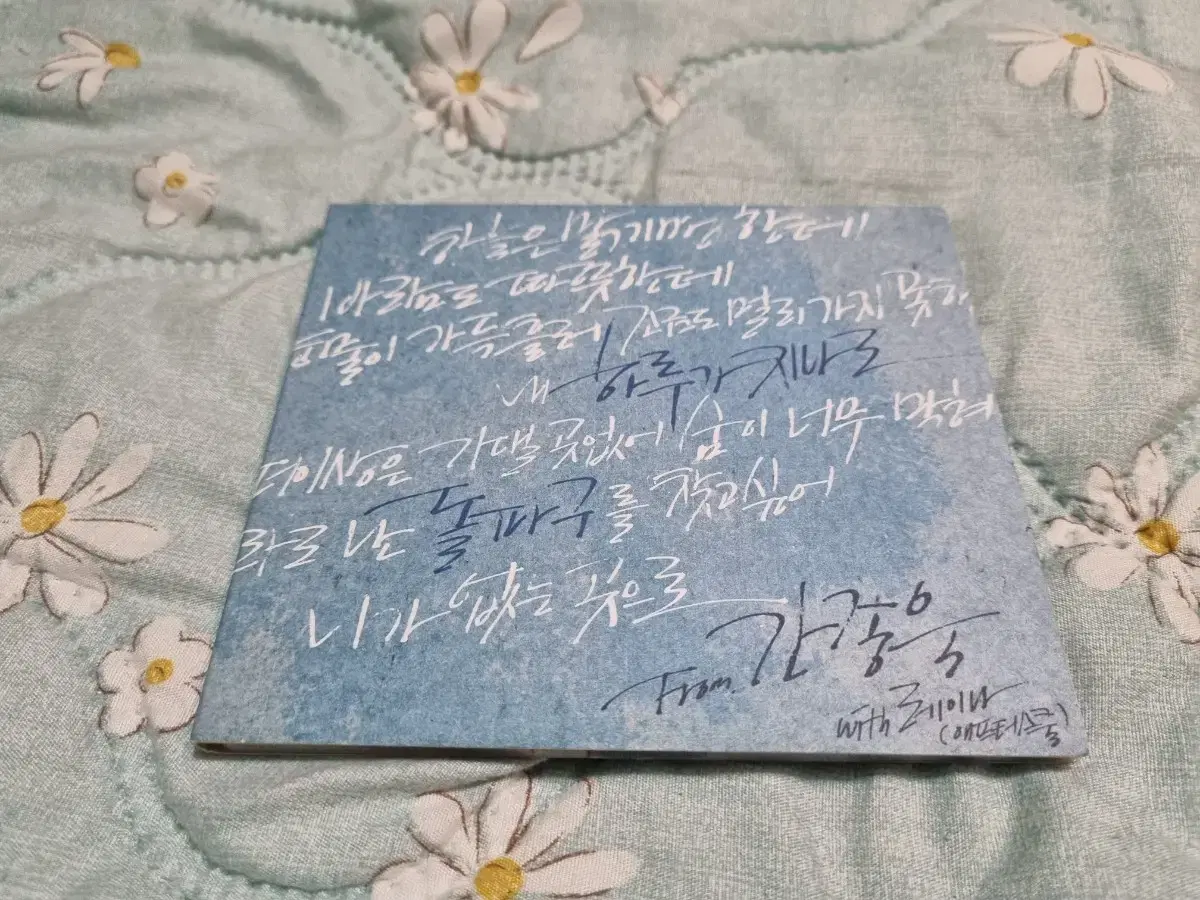 하늘은 맑기만 한데
바람도 따뜻한데
눈물이 가득 흘러 조금도 멀리 가지 못하
내 하루가 지나고
더 이상은 가댈 곳 없어 숨이 너무 막혀
라고 난 돌파구를 찾고 싶어
니가 없는 곳으로
From. 간종욱
with 레이나
(애프터스쿨)